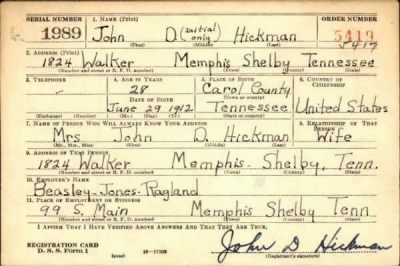 SERIAL NUMBER 1. NAME (Print) ORDER NUMBER
1989 John D. (initial only) Hickman 5419
(First) (Middle) (Last) 5419
2. ADDRESS (Print)
1824 Walker Memphis Shelby Tennessee
(Number and street or R. F. D. number) (Town) (County) (State)
3. TELEPHONE 4. AGE IN YEARS 5. PLACE OF BIRTH 6. COUNTRY OF CITIZENSHIP
28 Carol County
DATE OF BIRTH (Town or county)
June 29 1912 Tennessee United States
(Mo.) (Day) (Yr.) (State or country)
7. NAME OF PERSON WHO WILL ALWAYS KNOW YOUR ADDRESS 8. RELATIONSHIP OF THAT PERSON
Mrs John D. Hickman Wife
(Mr., Mrs., Miss) (First) (Middle) (Last)
9. ADDRESS OF THAT PERSON
1824 Walker Memphis- Shelby, Tenn.
(Number and street or R. F. D. number) (Town) (County) (State)
10. EMPLOYER'S NAME
Beasley-Jones-Ragland
11. PLACE OF EMPLOYMENT OR BUSINESS
99 S. Main Memphis Shelby Tenn
(Number and street or R. F. D. number) (Town) (County) (State)
I AFFIRM THAT I HAVE VERIFIED ABOVE ANSWERS AND THAT THEY ARE TRUE.
REGISTRATION CARD
D. S. S. Form 1 (over) John D Hickman
(Registrant's signature)